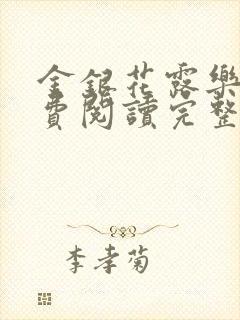 金銀花露樂
費閱讀完整
李孝菊